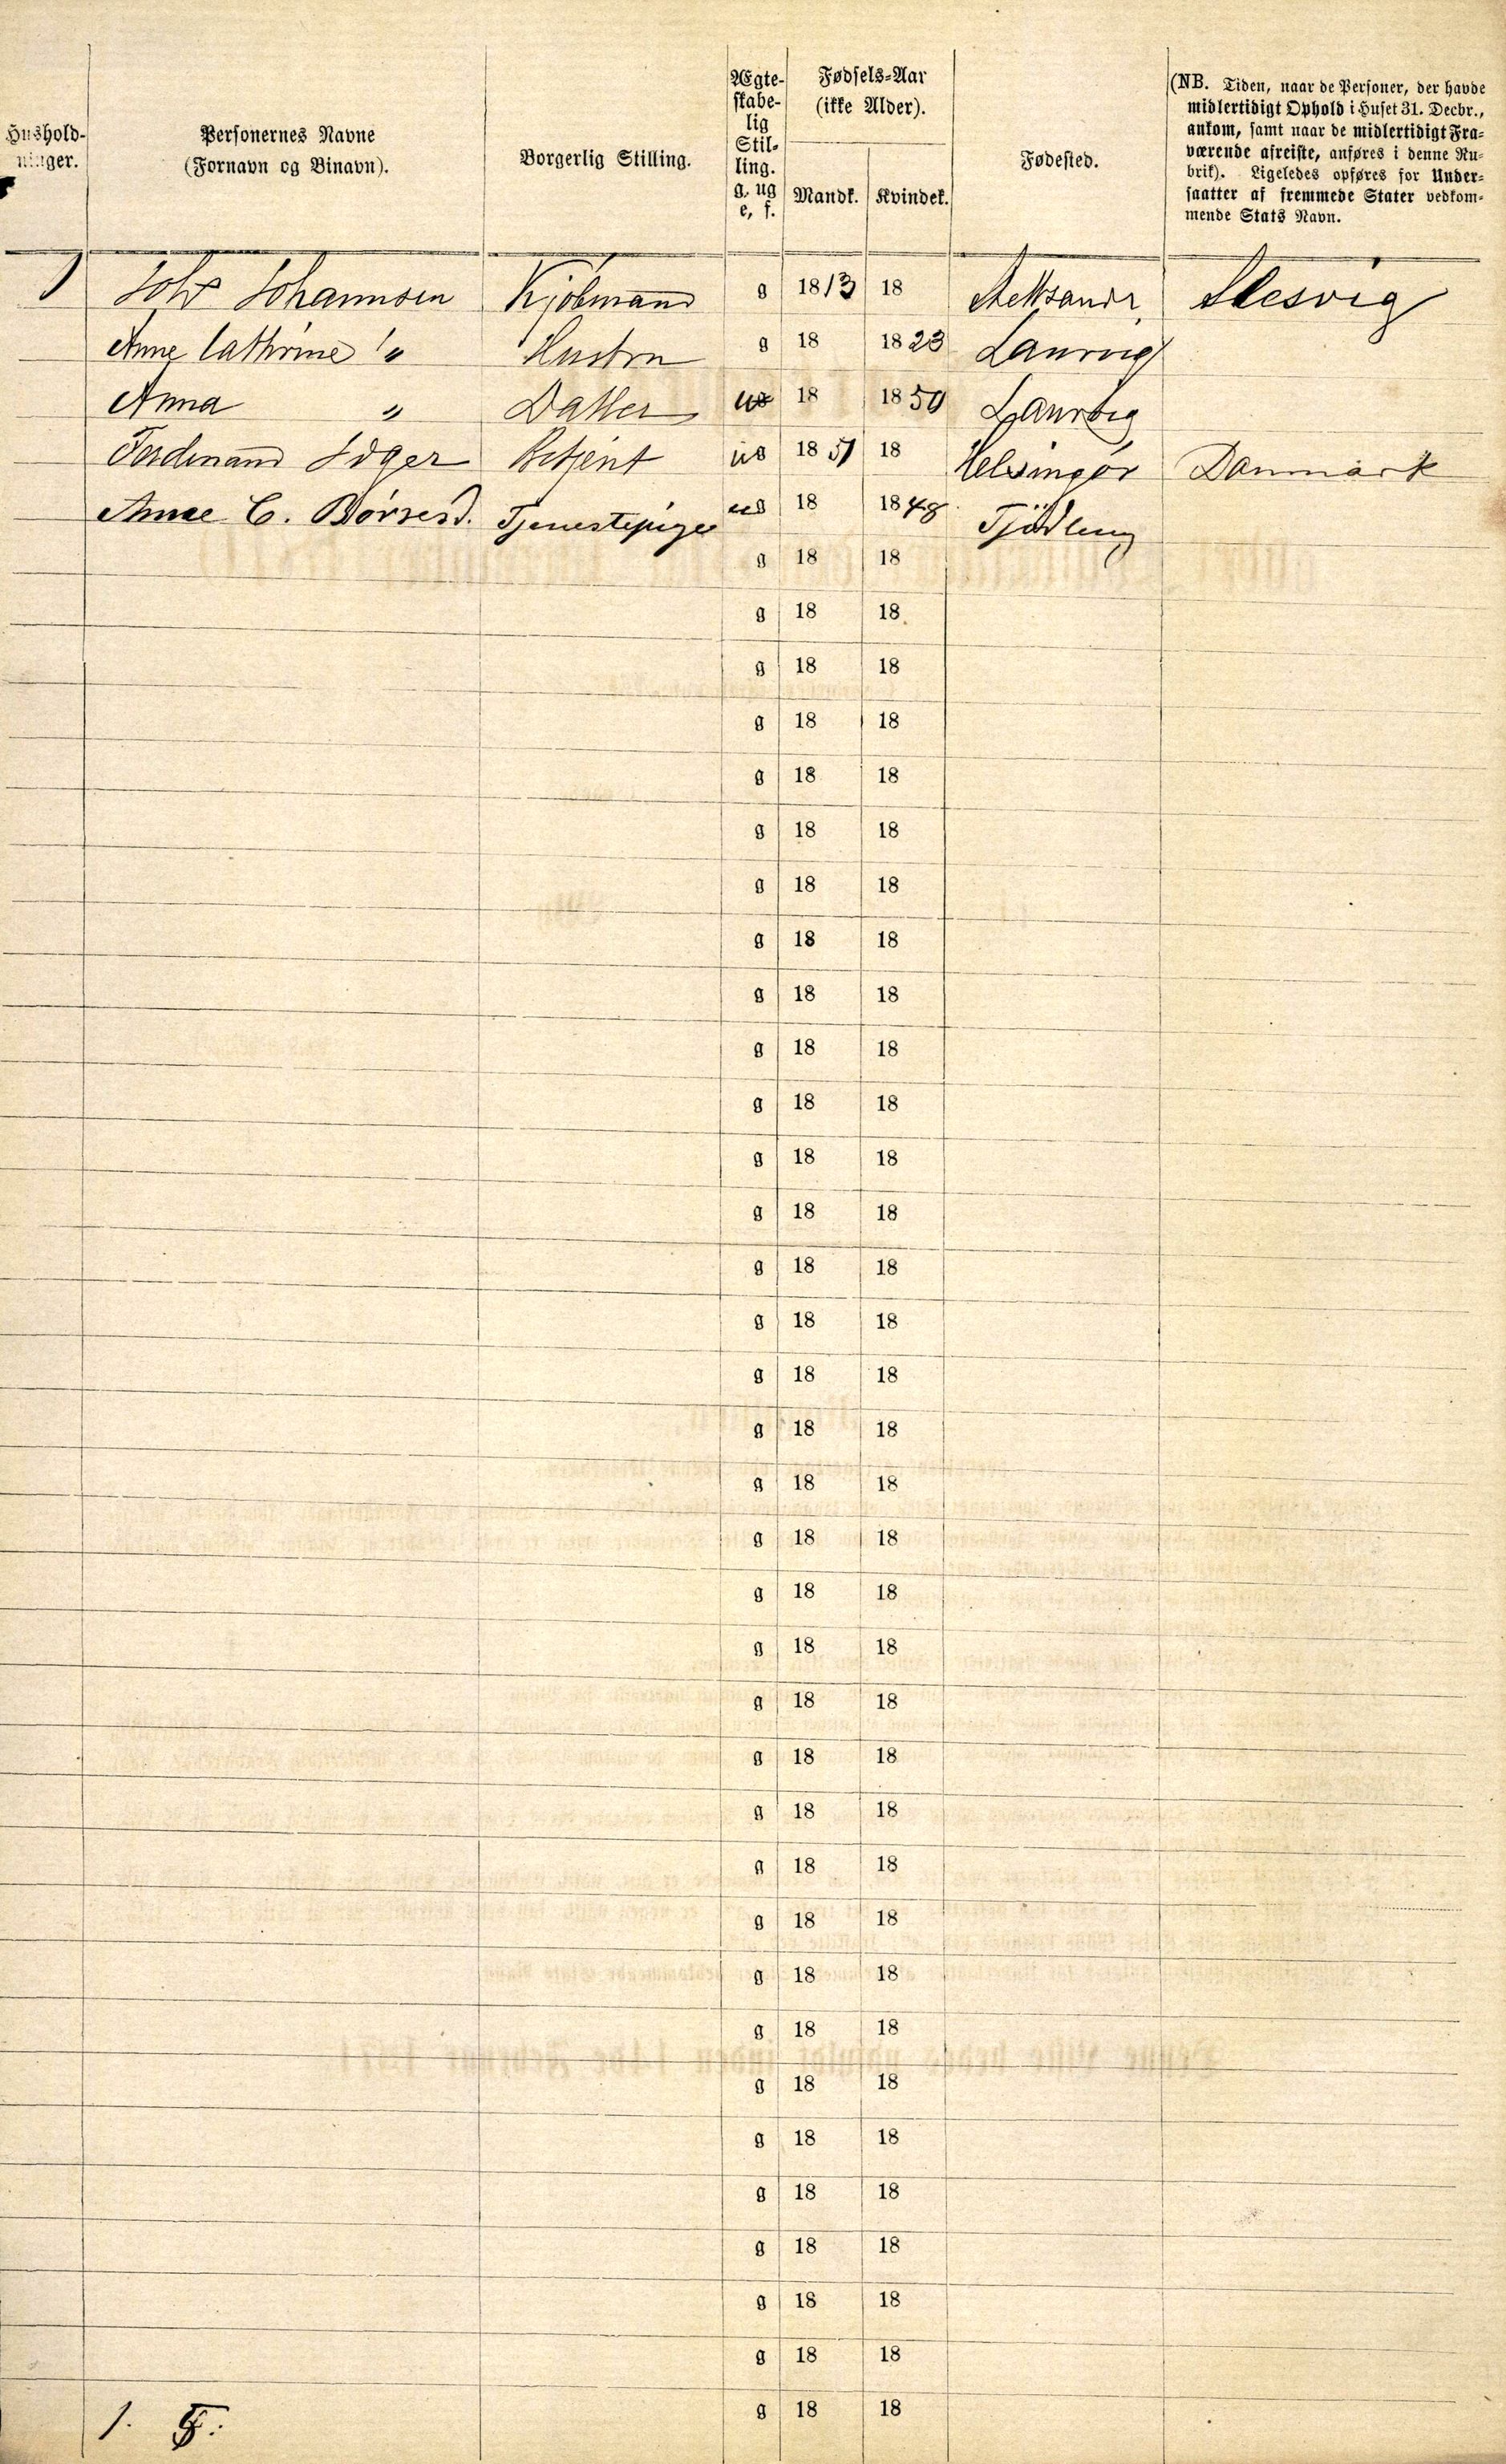 Hushold-
ninger.
Personernes Navne
(Fornavn og Binavn).
Borgerlig Stilling.
Ægte-
skabe-
lig
Stil-
ling.
g. ug
e, f.
Fødsels-Aar
(ikke Alder).
Mandk. Kvindek.
Fødested.
(NB. Tiden, naar de Personer, der havde
midlertidigt Ophold i Huset 31. Decbr.,
ankom, samt naar de midlertidigt Fra-
værende afreiste, anføres i denne Ru-
brik). Ligeledes opføres for Under-
saatter af fremmede Stater vedkom-
mende Stats Navn.
1 Johs Johannsen Kjøbmand g 1813 18 Slesvig
Anne Cathrine " Hustru g 18 1823 Laurvig
Anna " Datter ug 18 1850 Laurvig
Ferdinand Betjent ug 1851 18 Helsingør Danmark
Anne C. Tjenestepige ug 18 1848 Tjödling
g 18 18
g 18 18
g 18 18
g 18 18
g 18 18
g 18 18
g 18 18
g 18 18
g 18 18
g 18 18
g 18 18
g 18 18
g 18 18
g 18 18
g 18 18
g 18 18
g 18 18
g 18 18
g 18 18
g 18 18
g 18 18
g 18 18
g 18 18
g 18 18
g 18 18
g 18 18
g 18 18
g 18 18
g 18 18
g 18 18
g 18 18
g 18 18
g 18 18
g 18 18
g 18 18
1. 5.